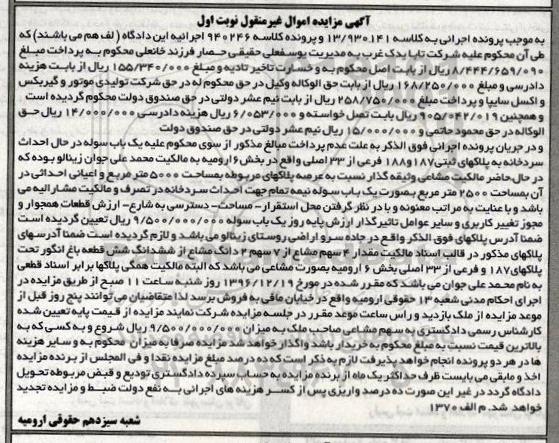 آگهی مزایده اموال غیر منقول نوبت اول
به موجب پرونده اجرائی به کلاسه ۱۳/۹۳۰۱۴۱ و پرونده کلاسه ۹۴۰۲۴۶ اجرائیه این دادگاه (لف هم می باشند) که
طی آن محکوم علیه شرکت تابا یدک غرب به مدیریت یوسفعلی حقیقی حصار فرزند خانعلی محکوم به پرداخت مبلغ
۸/۴۴۴/۶۵۹/۰۹۰ ریال از بابت اصل محکوم به و خسارت تاخیر تادیه و مبلغ ۱۵۵/۳۴۰/۰۰۰ ریال از بابت هزینه
دادرسی و مبلغ ۱۶۸/۲۵۰/۰۰۰ ریال از بابت حق الوکاله وکیل در حق محکوم له در حق شرکت تولیدی موتور و گیربکس
و اکسل سایپا و پرداخت مبلغ ۲۵۸/۷۵۰/۰۰۰ ریال از بابت نیم عشر دولتی در حق صندوق دولت محکوم گردیده است
و همچنین ۹۰۵/۰۴۲/۰۱۹ ریال بابت اصل خواسته و ۶/۰۵۳/۰۰۰ ریال هزینه دادرسی ۱۴/۰۰۰/۰۰۰ ریال حق
الوکاله در حق محمود حاتمی و ۱۵/۰۰۰/۰۰۰ ریال نیم عشر دولتی در حق صندوق دولت
و در جریان پرونده اجرائی فوق الذکر به علت عدم پرداخت مبالغ مذکور از سوی محکوم علیه یک باب سوله در حال احداث
سردخانه به پلاکهای ثبتی ۱۸۷ و ۱۸۸ فرعی از ۳۳ اصلی واقع در بخش ۶ ارومیه به مالکیت محمد علی جوان زینالو بوده که
در حال حاضر مالکیت مشاعی وثیقه گذار نسبت به عرصه پلاکهای مربوطه بمساحت ۵۰۰۰ متر مربع و اعیانی احداثی در
آن بمساحت ۲۵۰۰ متر مربع بصورت یک باب سوله نیمه تمام جهت احداث سردخانه در تصرف و مالکیت مشارالیه می
باشد و با عنایت به مراتب معنونه و با در نظر گرفتن محل استقرار- مساحت- دسترسی به شارع- ارزش قطعات همجوار و
مجوز تغییر کاربری و سایر عوامل تاثیر گذار ارزش پایه روز یک باب سوله ۹/۵۰۰/۰۰۰/۰۰۰ ریال تعیین گردیده است
ضمنا آدرس پلاکهای فوق الذکر واقع در جاده سرو اراضی روستای زینالو می باشد و لازم گردیده است ضمنا آدرسهای
پلاکهای مذکور در قالب اسناد مالکیت مقدار ۴ سهم مشاع از ۷ سهم ۲ دانگ مشاع از ششدانگ شش قطعه باغ انگور تحت
پلاکهای ۱۸۷ و فرعی از ۳۳ اصلی بخش ۶ ارومیه بصورت مشاعی می باشد که البته مالکیت همگی پلاکها برابر اسناد قطعی
به نام محمد علی جوان می باشد که مقرر شده در مورخ ۱۳۹۶/۱۲/۱۹ روز شنبه ساعت ۱۱ صبح از طریق مزایده در
اجرای احکام مدنی شعبه ۱۳ حقوقی ارومیه واقع در خیابان مافی به فروش برسد لذا متقاضیان می توانند پنج روز قبل از
موعد مزایده از ملک بازدید و راس ساعت موعد مقرر در جلسه مزایده شرکت نمایند مزایده از قیمت پایه تعیین شده
کارشناس رسمی دادگستری به سهم مشاعی صاحب ملک به میزان ۹/۵۰۰/۰۰۰/۰۰۰ ریال شروع و به کسی که به
بالاترین قیمت نسبت به مبلغ محکوم به خریدار باشد واگذار خواهد شد مزایده صرفا به میزان محکوم به و سایر هزینه
ها در هر دو پرونده انجام خواهد پذیرفت لازم به ذکر است که ده درصد مبلغ مزایده نقدا و فی المجلس از برنده مزایده
اخذ و مابقی می بایست ظرف حداکثر یک ماه از برنده مزایده به حساب سپرده دادگستری تودیع و قبض مربوطه تحویل
دادگاه گردد در غیر این صورت ده درصد واریزی پس از کسر هزینه های اجرائی به نفع دولت ضبط و مزایده تجدید
خواهد شد. م الف ۱۳۷۰
شعبه سیزدهم حقوقی ارومیه